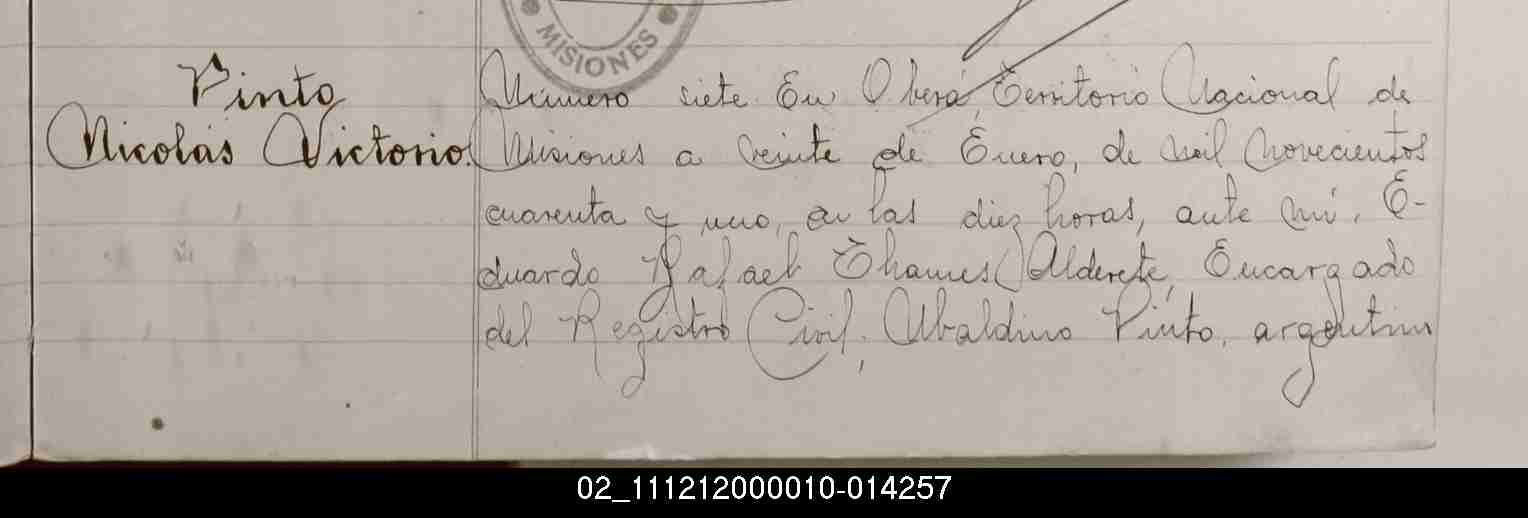 MISIONES
Pinto
Nicolás Victorio.
Número siete. En Oberá, Territorio Nacional de
Misiones a veinte de Enero, de mil novecientos
cuarenta y uno, a las diez horas, ante mí, E-
duardo Rafael Thames Alderete, Encargado
del Registro Civil; Ubaldino Pinto, argentino
02_111212000010-014257